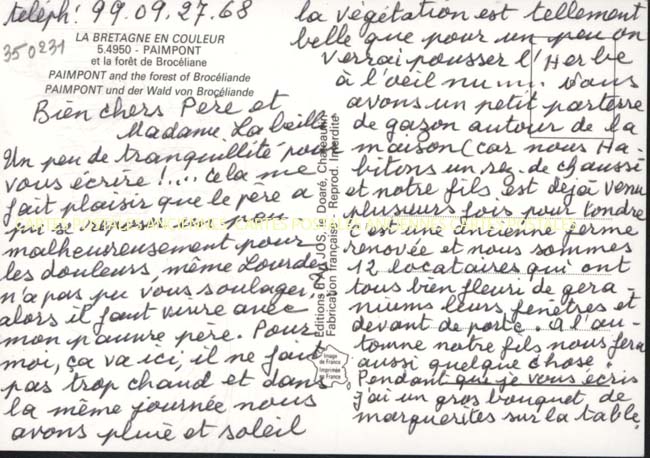 teléph: 99.09.27.68
350231
LA BRETAGNE EN COULEUR
5.4950 - PAIMPONT
et la forêt de Brocéliane
PAIMPONT and the forest of Brocéliande
PAIMPONT und der Wald von Brocéliande
Bien chers Père et
Madame Labeille
Un peu de tranquillité pour
vous écrire !.... cela me
fait plaisir que le père a
pu se
malheureusement pour
les douleurs, même Lourdes
n'a pas pu vous soulager.
alors il faut vivre avec
mon pauvre père. Pour
moi, ça va ici, il ne fait
pas trop chaud et dans
la même journée nous
avons pluie et soleil
la végétation est tellement
belle que pour un peu on
verrai pousser l'Herbe
à l'oeil nu.... Nous
avons un petit parterre
de gazon autour de la
maison (car nous Ha-
bitons un rez. de chaussé
et notre fils est dejà venu
plusieurs fois pour tondre
C'est une ancienne ferme
renovée et nous sommes
12 locataires qui ont
tous bien fleuri de gera-
niums leurs fenêtres et
devant de porte. a l'au-
tomne notre fils nous fera
aussi quelque chose.
Pendant que je vous écris
j'ai un gros bouquet de
marguerites sur la table.
Editions d'Art JOS, Le Doaré, Châteaulin
Fabrication française - Reprod. Interdite
Image
de France
Imprimée
en France
CARTES POSTALES ANCIENNES